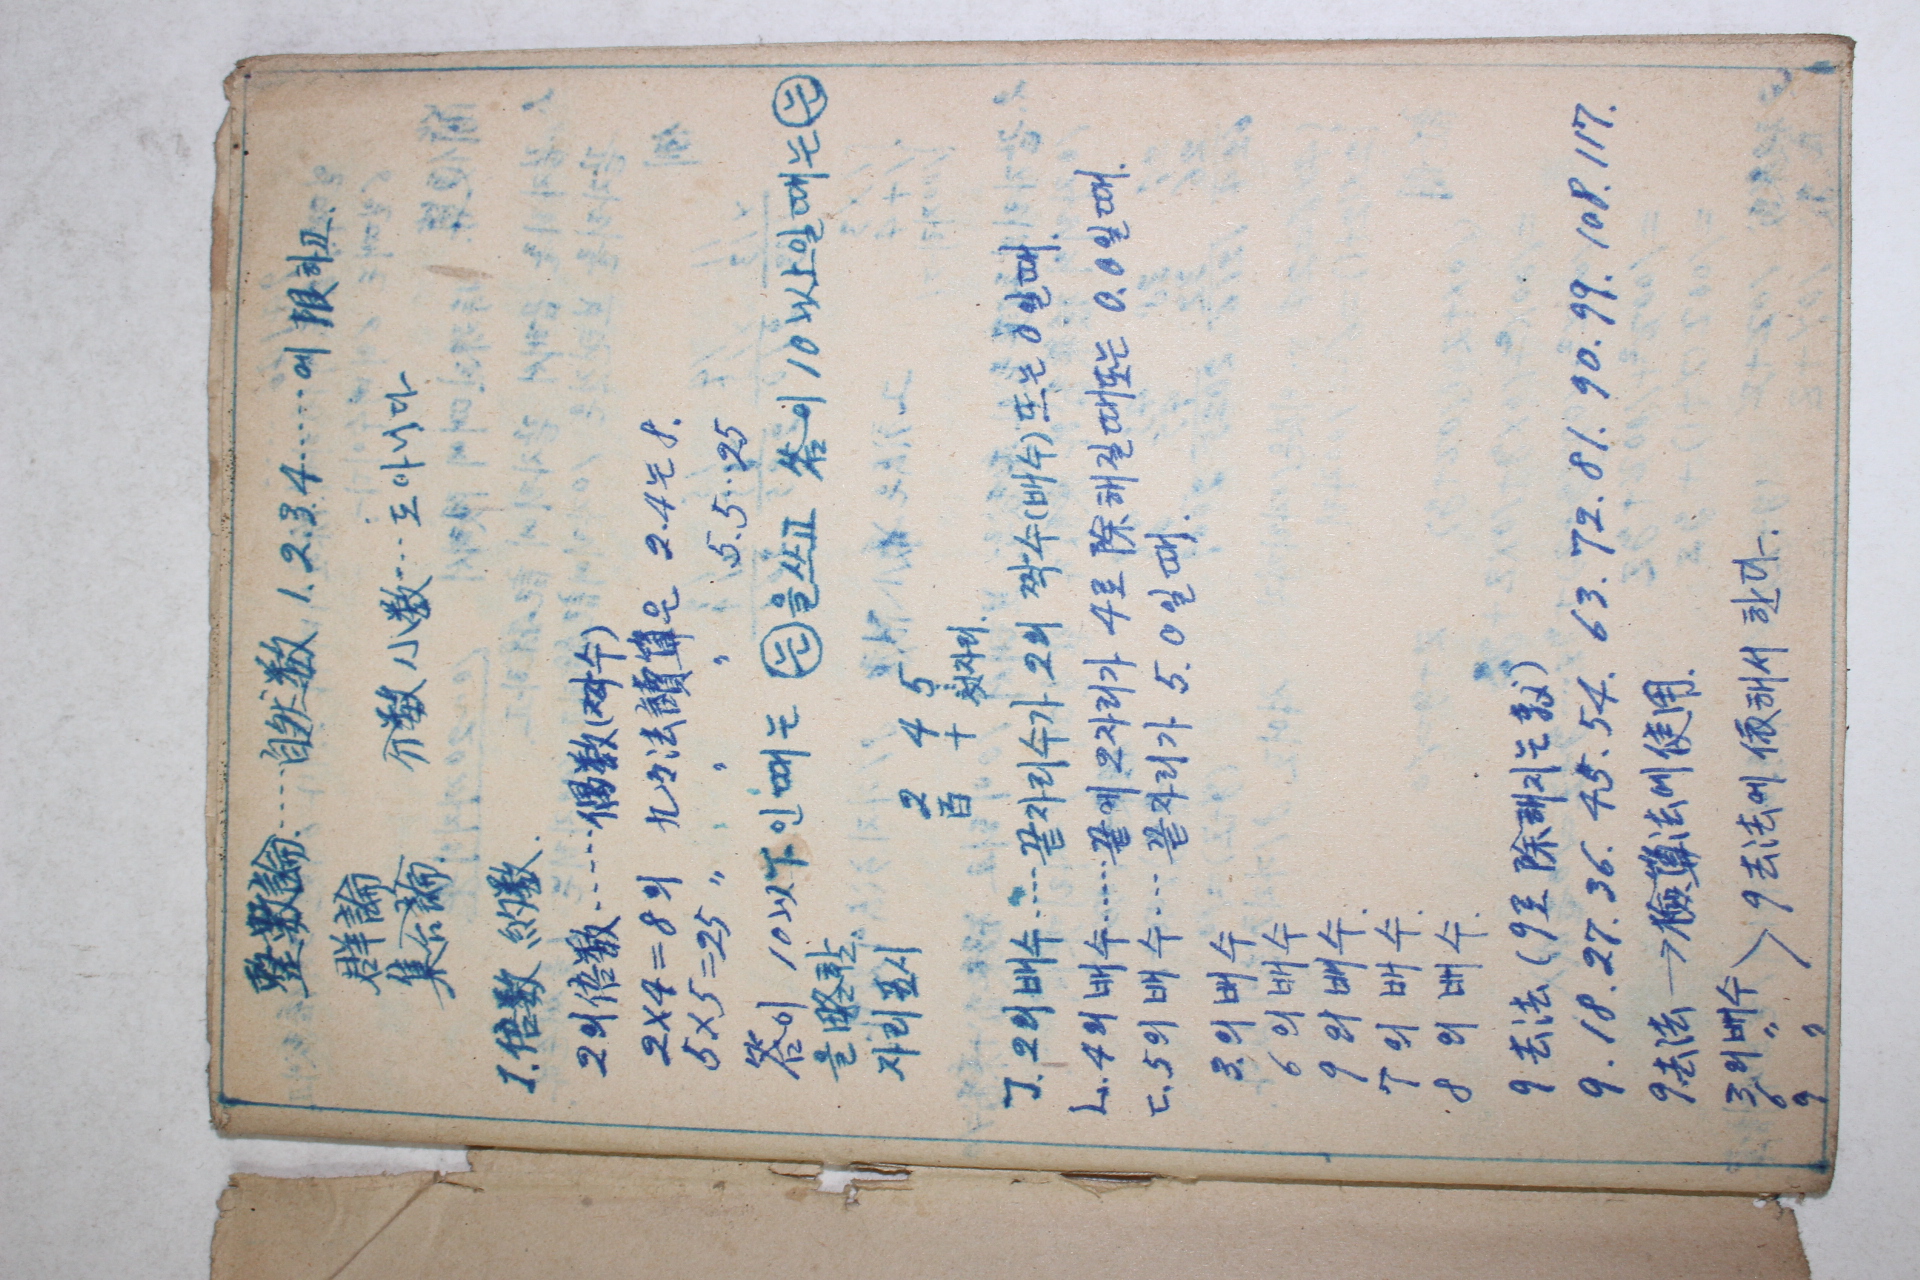 整數論....自然数 1.2.3.4.....에 限하고.
群論
集合論. 分數 小數...도아니다
I. 倍數 約數.
2의 倍數.....偶數(짝수)
2×4=8의 九々法讀算은 2.4는 8.
5×5=25 〃 〃 〃 5.5..25
答이 10以下인때는 는 을쓰고 答이 10以上일때는 는
을 略한다.
자리표시 2百 4十 5첫자리.
ㄱ. 2의배수....끝자리수가 2의 짝수(배수)또는 0일때.
ㄴ. 4의배수....끝에 2자리가 4로 除해질때또는 0.0일때.
ㄷ. 5의배수...끝자리가 5.0일때.
3.의 배수
6의 배수
9의 배수.
7의 배수.
8의 배수.
9去法(9로 除해지는 數)
9.18.27.36.45.54.63.72.81.90.99.108.117.
9去法→檢算法에使用.
3의배수
6 〃 〉9去法에 依해서 한다.
9 〃